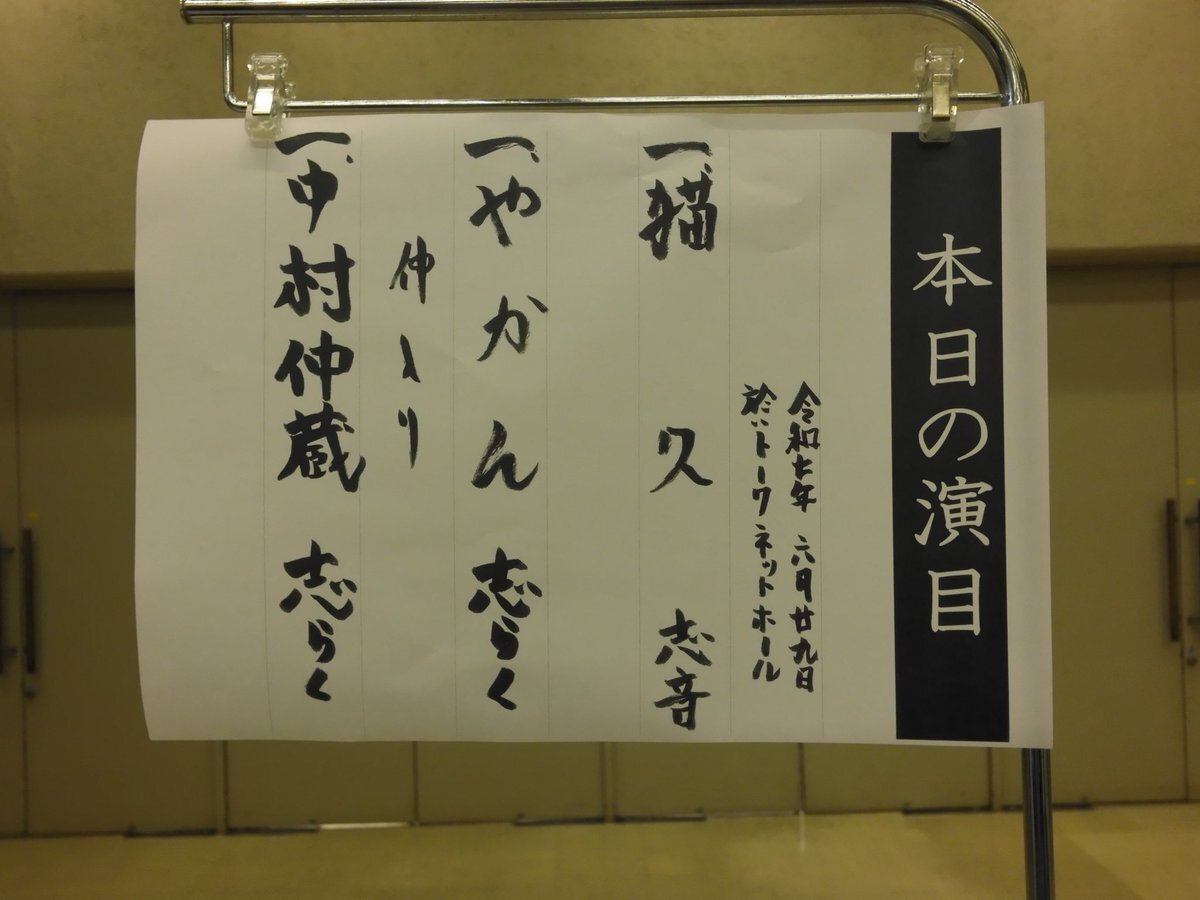 本日の演目
令和七年 六月廿九日
於:トークネットホール
一、猫久 志音
一、やかん 志らく
仲入り
一、中村仲蔵 志らく